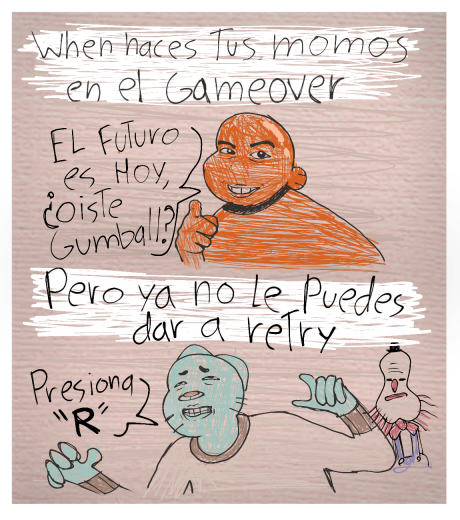 When haces Tus momos
en el Gameover
EL FUTURO
es HOY,
¿oiste
Gumball?
Pero ya no Le Puedes
dar a reTry
Presiona
"R"